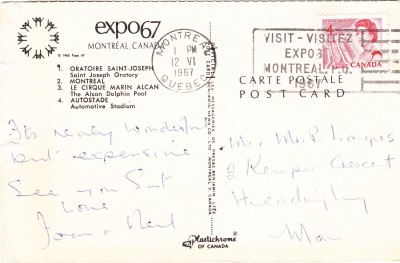 expo67
MONTRÉAL, CANADA
© 1963 Expo 67
1. ORATOIRE SAINT-JOSEPH
Saint Joseph Oratory
2. MONTREAL
3. LE CIRQUE MARIN ALCAN
The Alcan Dolphin Pool
4. AUTOSTADE
Automotive Stadium
It's really wonderful
but expensive
See you Sat
Love
MONTREAL
1 PM
12 VI
1967
QUEBEC
VISIT - VISITEZ
EXPO
MONTREAL, P.Q.
1967
4
CANADA
CARTE POSTALE
POST CARD
Mr. Mrs. P.
2 Kemper Crescent
Headingley
Man
Plastichrome
OF CANADA